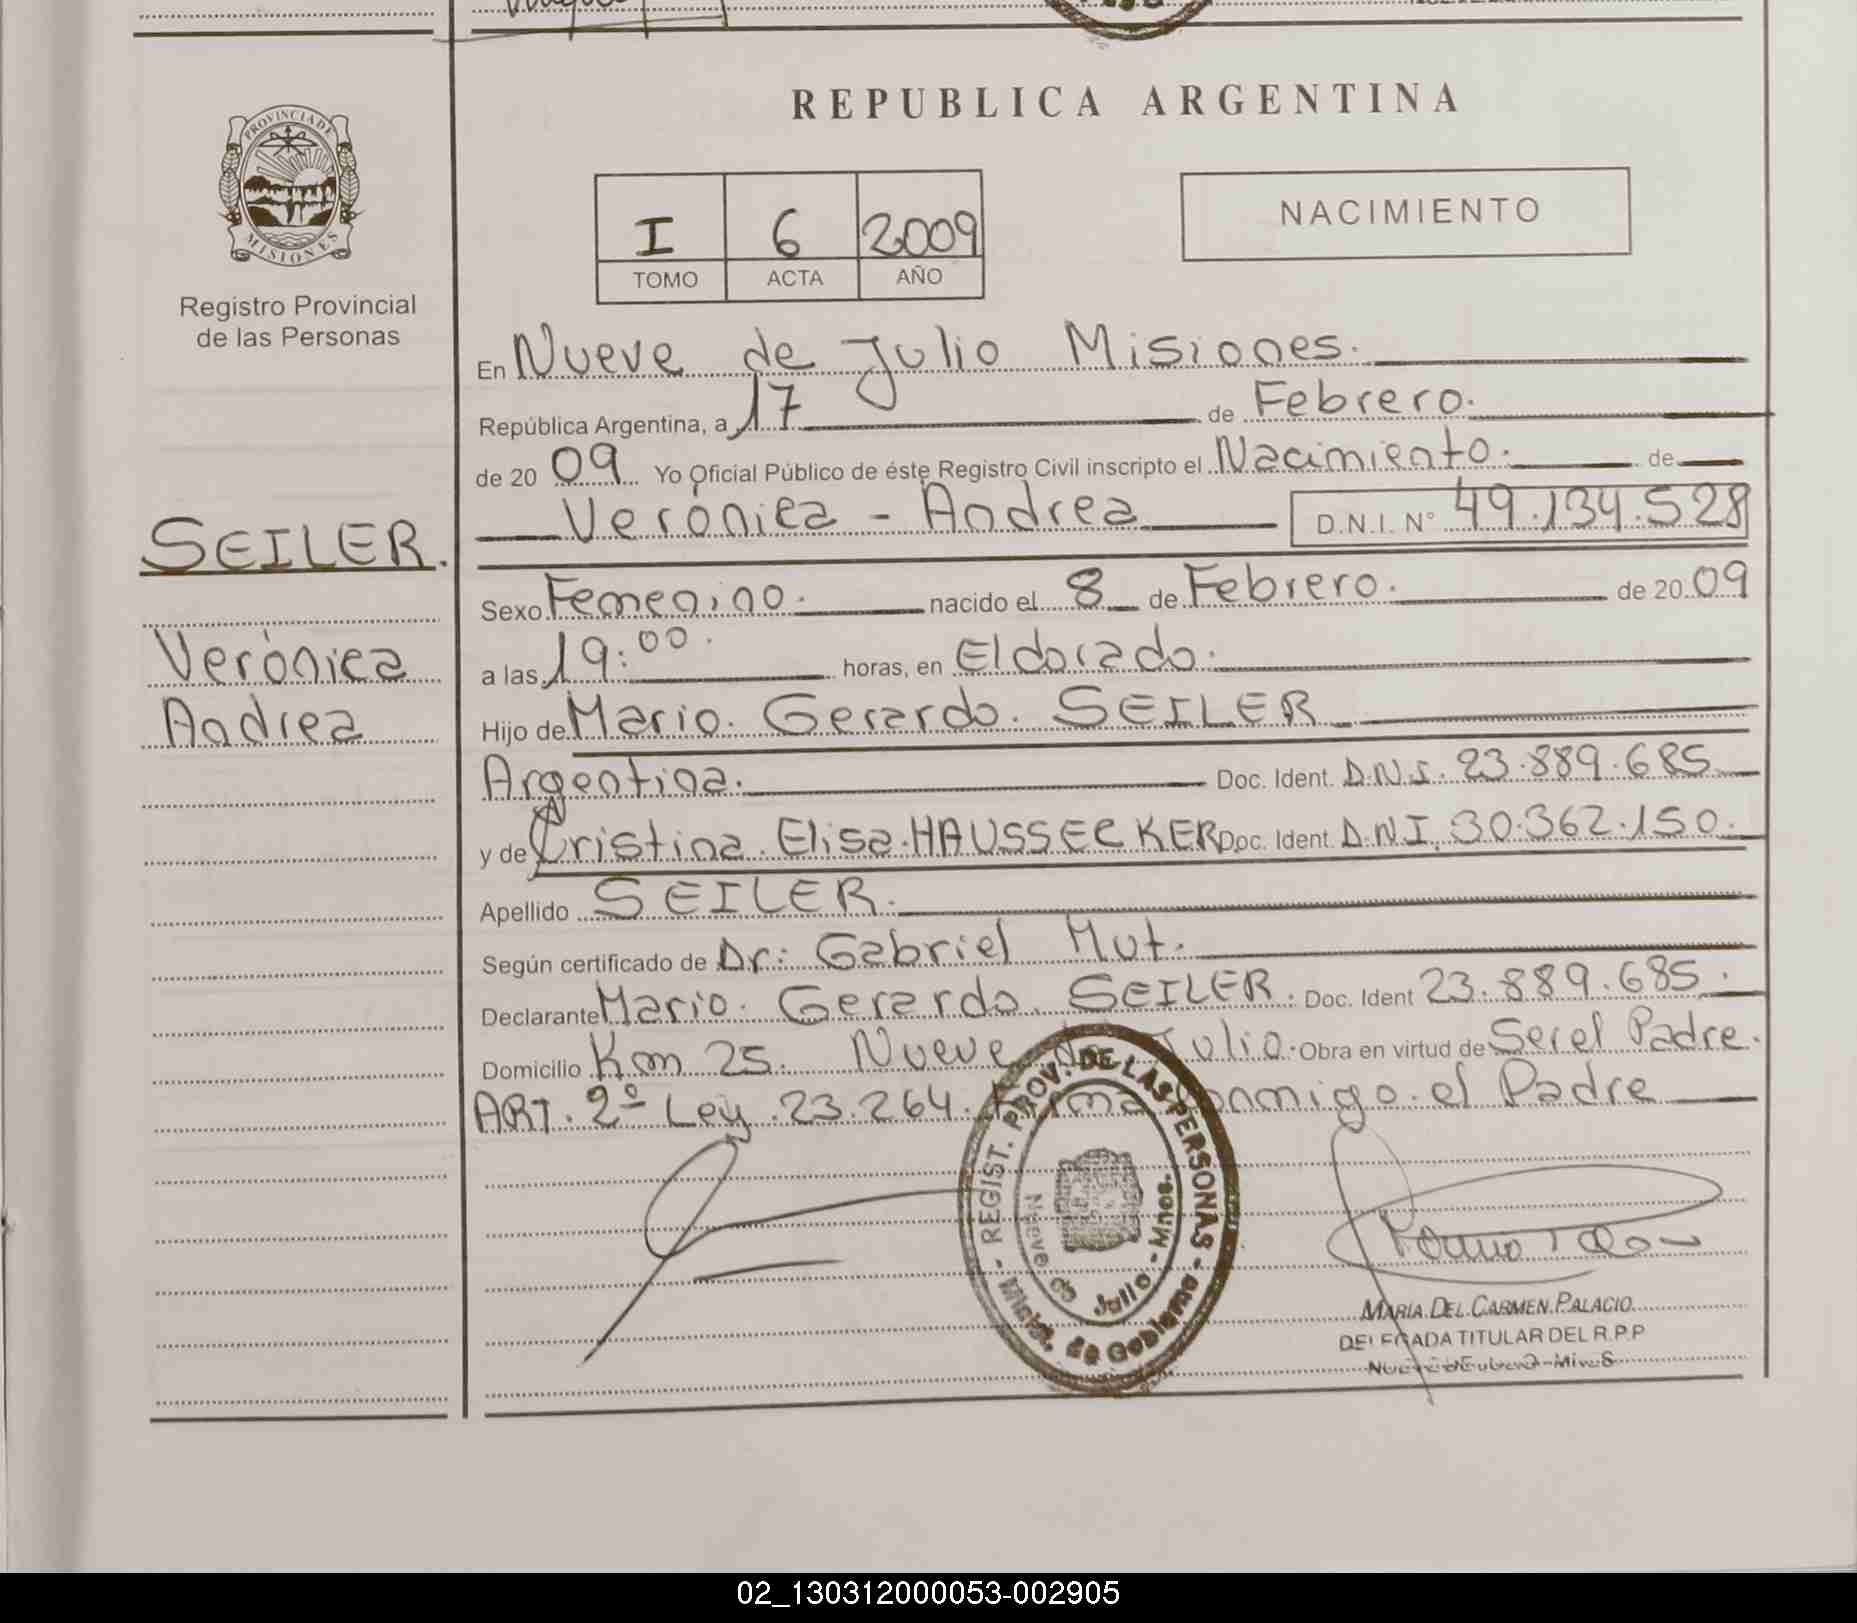 REPUBLICA ARGENTINA
PROVINCIA DE MISIONES
Registro Provincial
de las Personas
I 6 2009
TOMO ACTA AÑO
NACIMIENTO
En Nueve de Julio Misiones.
República Argentina, a 17 de Febrero.
de 20 09 Yo Oficial Público de éste Registro Civil inscripto el Nacimiento. de
Verónica - Andrea D.N.I. N° 49.134.528
SEILER.
Verónica
Andrea
Sexo Femenino. nacido el 8 de Febrero. de 20 09
a las 19:00. horas, en Eldorado.
Hijo de Mario. Gerardo. SEILER
Argentina. Doc. Ident. D.N.I. 23.889.685
y de Cristina. Elisa. HAUSSECKER Doc. Ident. D.N.I. 30.362.150.
Apellido SEILER.
Según certificado de Dr: Gabriel Mut.
Declarante Mario. Gerardo. SEILER. Doc. Ident 23.889.685.
Domicilio Km 25. Nueve de Julio. Obra en virtud de Ser el Padre.
ART. 2º Ley. 23.264. Firma conmigo. el Padre
- REGIST. PROV. DE LAS PERSONAS -
Minist. de Gobierno
Nueve de Julio - Mnes.
MARIA DEL CARMEN PALACIO
DELEGADA TITULAR DEL R.P.P
02_130312000053-002905